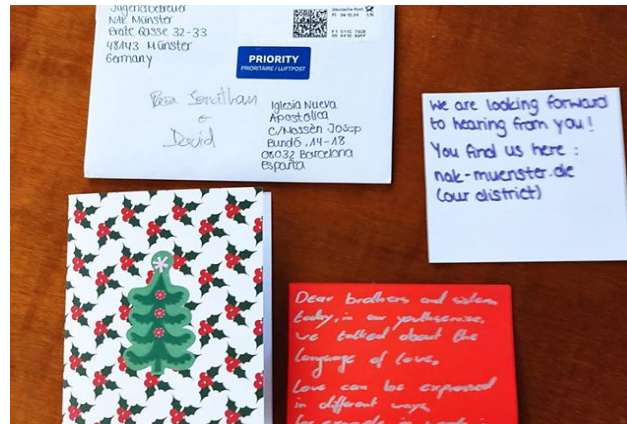 Jugendbetreuer
NAK Münster
Breite Gasse 32-33
48143 Münster
Germany
Deutsche Post
PRIORITY
PRIORITAIRE / LUFTPOST
Para Jonathan
o
David
Iglesia Nueva
Apostólica
C/Mossèn Josep
Bundó, 14-18
08032 Barcelona
España
We are looking forward
to hearing from you!
You find us here:
nak-muenster.de
(our district)
Dear brothers and sisters
today, in our youthservice,
we talked about the
language of love.
Love can be expressed
in different ways,
for example in words,